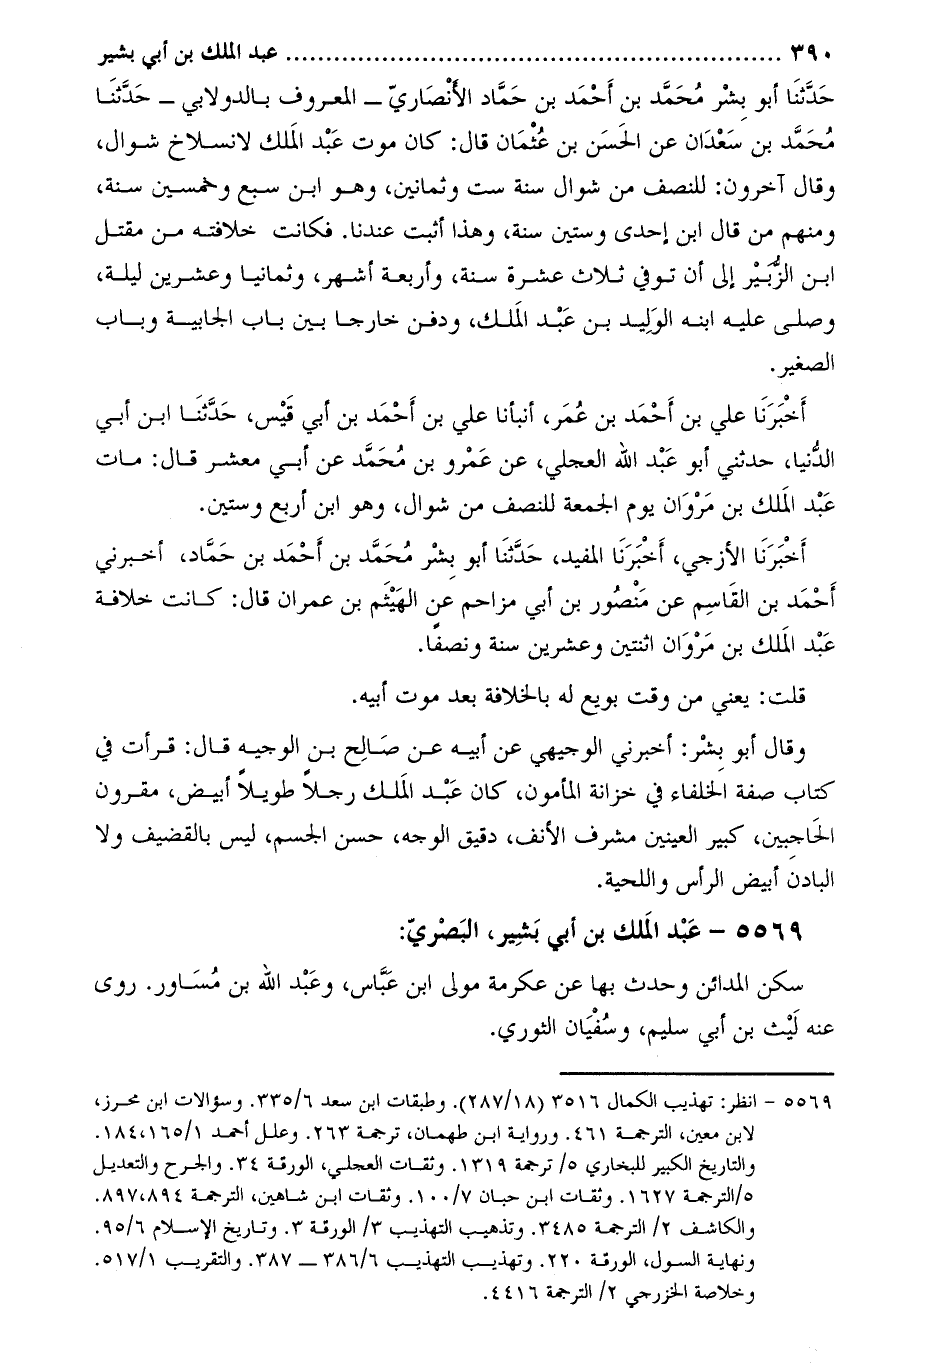 ٣٩٠ ............................................................. عبد الملك بن أبي بشير
حَدَّثَنَا أبو بِشْر مُحَمَّد بن أَحْمَد بن حَمَّاد الأَنْصَاريّ ــ المعروف بالدولابي ــ حَدَّثَنَا
مُحَمَّد بن سَعْدَان عن الحَسَن بن عُثْمَان قال: كان موت عَبْد الَملك لانسلاخ شوال،
وقال آخرون: للنصف من شوال سنة ست وثمانين، وهو ابن سبع وخمسين سنة،
ومنهم من قال ابن إحدى وستين سنة، وهذا أثبت عندنا. فكانت خلافته من مقتل
ابن الزُّبَيْر إلى أن توفي ثلاث عشرة سنة، وأربعة أشهر، وثمانيا وعشرين ليلة،
وصلى عليه ابنه الوَلِيد بن عَبْد الَملك، ودفن خارجا بين باب الجابية وباب
الصغير.
أَخْبَرَنَا علي بن أَحْمَد بن عُمَر، أنبأنا علي بن أَحْمَد بن أبي قَيْس، حَدَّثَنَا ابن أبي
الدُّنيا، حدثني أبو عَبْد الله العجلي، عن عَمْرو بن مُحَمَّد عن أبي معشر قال: مات
عَبْد الَملك بن مَرْوَان يوم الجمعة للنصف من شوال، وهو ابن أربع وستين.
أَخْبَرَنَا الأزجي، أَخْبَرَنَا المفيد، حَدَّثَنَا أبو بِشْر مُحَمَّد بن أَحْمَد بن حَمَّاد، أخبرني
أَحْمَد بن القَاسِم عن مَنْصُور بن أبي مزاحم عن الهَيْثَم بن عمران قال: كانت خلافة
عَبْد الَملك بن مَرْوَان اثنتين وعشرين سنة ونصفًا.
قلت: يعني من وقت بويع له بالخلافة بعد موت أبيه.
وقال أبو بِشْر: أخبرني الوجيهي عن أبيه عن صَالِح بن الوجيه قال: قرأت في
كتاب صفة الخلفاء في خزانة المأمون، كان عَبْد الَملك رجلاً طويلاً أبيض، مقرون
الحَاجِبين، كبير العينين مشرف الأنف، دقيق الوجه، حسن الجسم، ليس بالقضيف ولا
البادن أبيض الرأس واللحية.
٥٥٦٩ – عَبْد الَملك بن أبي بَشِير، البَصْريّ:
سكن المدائن وحدث بها عن عكرمة مولى ابن عَبَّاس، وعَبْد الله بن مُسَاور. روى
عنه لَيْث بن أبي سليم، وسُفْيَان الثوري.
٥٥٦٩ – انظر: تهذيب الكمال ٣٥١٦ (٢٨٧/١٨). وطبقات ابن سعد ٣٣٥/٦. وسؤالات ابن محرز،
لابن معين، الترجمة ٤٦١. ورواية ابن طهمان، ترجمة ٢٦٣. وعلل أحمد ١٦٥/١، ١٨٤.
والتاريخ الكبير للبخاري ٥/ ترجمة ١٣١٩. وثقات العجلي، الورقة ٣٤. والجرح والتعديل
٥/الترجمة ١٦٢٧. وثقات ابن حبان ١٠٠/٧. وثقات ابن شاهين، الترجمة ٨٩٤، ٨٩٧.
والكاشف ٢/ الترجمة ٣٤٨٥. وتذهيب التهذيب ٣/ الورقة ٣. وتاريخ الإسلام ٩٥/٦.
ونهاية السول، الورقة ٢٢٠. وتهذيب التهذيب ٣٨٦/٦ ــ ٣٨٧. والتقريب ٥١٧/١.
وخلاصة الخزرجي ٢/ الترجمة ٤٤١٦.